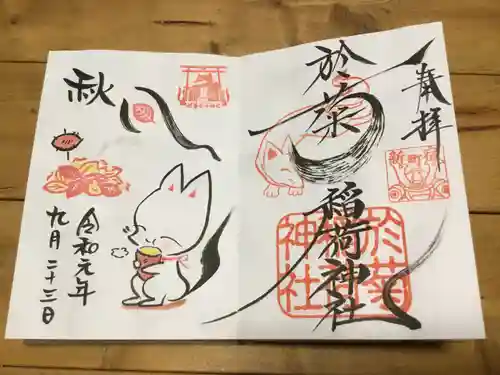 奉拝
於菊
稲荷神社
新町宿
於菊
神社
秋
令和元年
九月二十三日